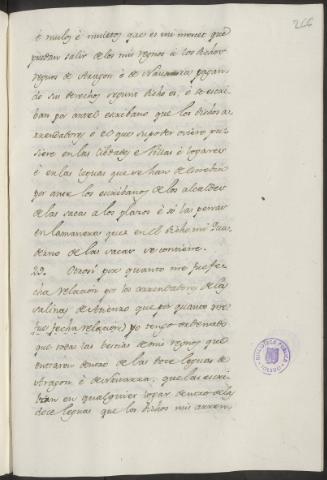 266
é mulos é muletos que es mi mercet que
puedan salir de los mis regnos á los dichos
regnos de Aragon é de Navarra pagan-
do su derecho segunt dicho es, é se escri-
ban por antel escribano que los dichos a-
rrendadores é el que su poder oviere pu-
siere en las cibdades é Villas é logares
é en las leguas que se han de escrebir
por ante los escribanos de los alcaldes
de las sacas á los plazos é só las penas
en la manera que en el dicho mi Qua-
derno de las sacas se contiene.
29. Otrosi por quanto me fue fe-
cha relacion por los arrendadores de las
salinas de Atienza que por quanto me
fue fecha relacion yo tengo ordenado
que todas las bestias de mis regnos que
entraren dentro de las doce leguas de
Aragon é de Navarra, que las escri-
ban en qualquier logar dentro de las
doce leguas que los dichos mis arren-
BIBLIOTECA PUBLICA
TOLEDO